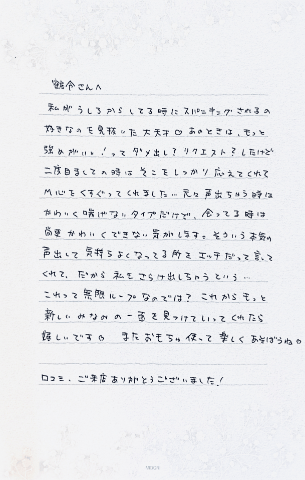 鶴令さんへ
私がうしろからしてる時にスパンキングされるの
好きなのを見抜いた大天才♡ あのときは、もっと
強めがいい！ってダメ出し？リクエスト？したけど
二度目ましての時はそこをしっかり応えてくれて
M心をくすぐってくれました…元々声出ちゃう時は
かわいく喘げないタイプだけど、会ってる時は
かわいくできない気がします。そういうお
声出して気持ちよくなってる所をエッチだって言って
くれて、だから私もさらけ出しちゃうという…
これって無限ループなのでは？ これからもっと
新しいみなみの一面を見つけていってくれたら
嬉しいです♡ またおもちゃ使って楽しくあそぼうね♡
口コミ、ご来店ありがとうございました！